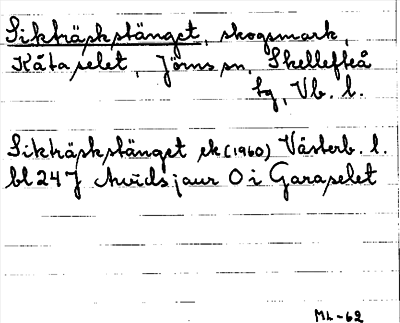 Sikträskstänget, skogsmark,
Kåtaselet, Jörns sn, Skellefteå
tg, Vb. l.
Sikträskstänget ek (1960) Västerb. l.
bl 24 J Arvidsjaur O i Garaselet
ML-62